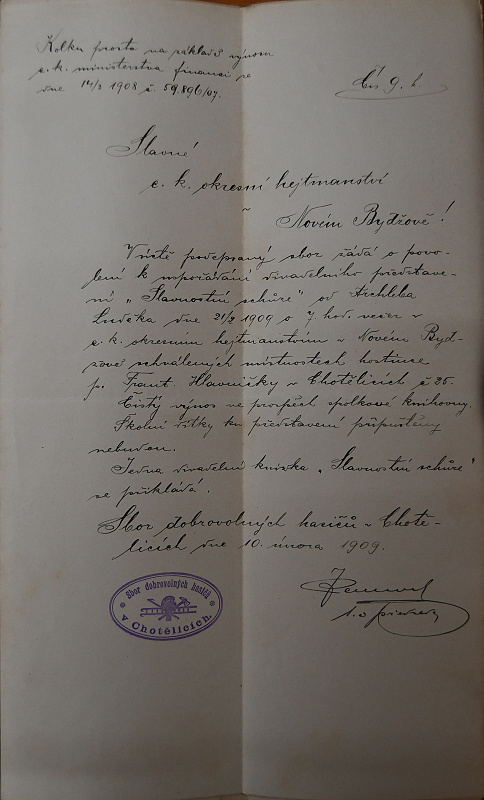 Kolku prosto na základě výnosu
c. k. ministerstva financí ze
dne 14/3 1908 č. 59.896/07.
Čís 9. h.
Slavné
c. k. okresní hejtmanství
v
Novém Bydžově!
V úctě podepsaný sbor žádá o povo-
lení k uspořádání divadelního představe-
ní „Slavnostní schůze" od Archleba
Luďka dne 21/2 1909 o 7 hod. večer v
c. k. okresním hejtmanstvím v Novém Byd-
žově schválených místnostech hostince
p. Frant. Hlavničky v Chotělicích č 25.
Čistý výnos ve prospěch spolkové knihovny.
Školní dítky ku představení připuštěny
nebudou.
Jedna divadelní knížka „Slavnostní schůze"
se přikládá.
Sbor dobrovolných hasičů v Chotě-
licích dne 10. února 1909.
Sbor dobrovolných hasičů
v Chotělicích.